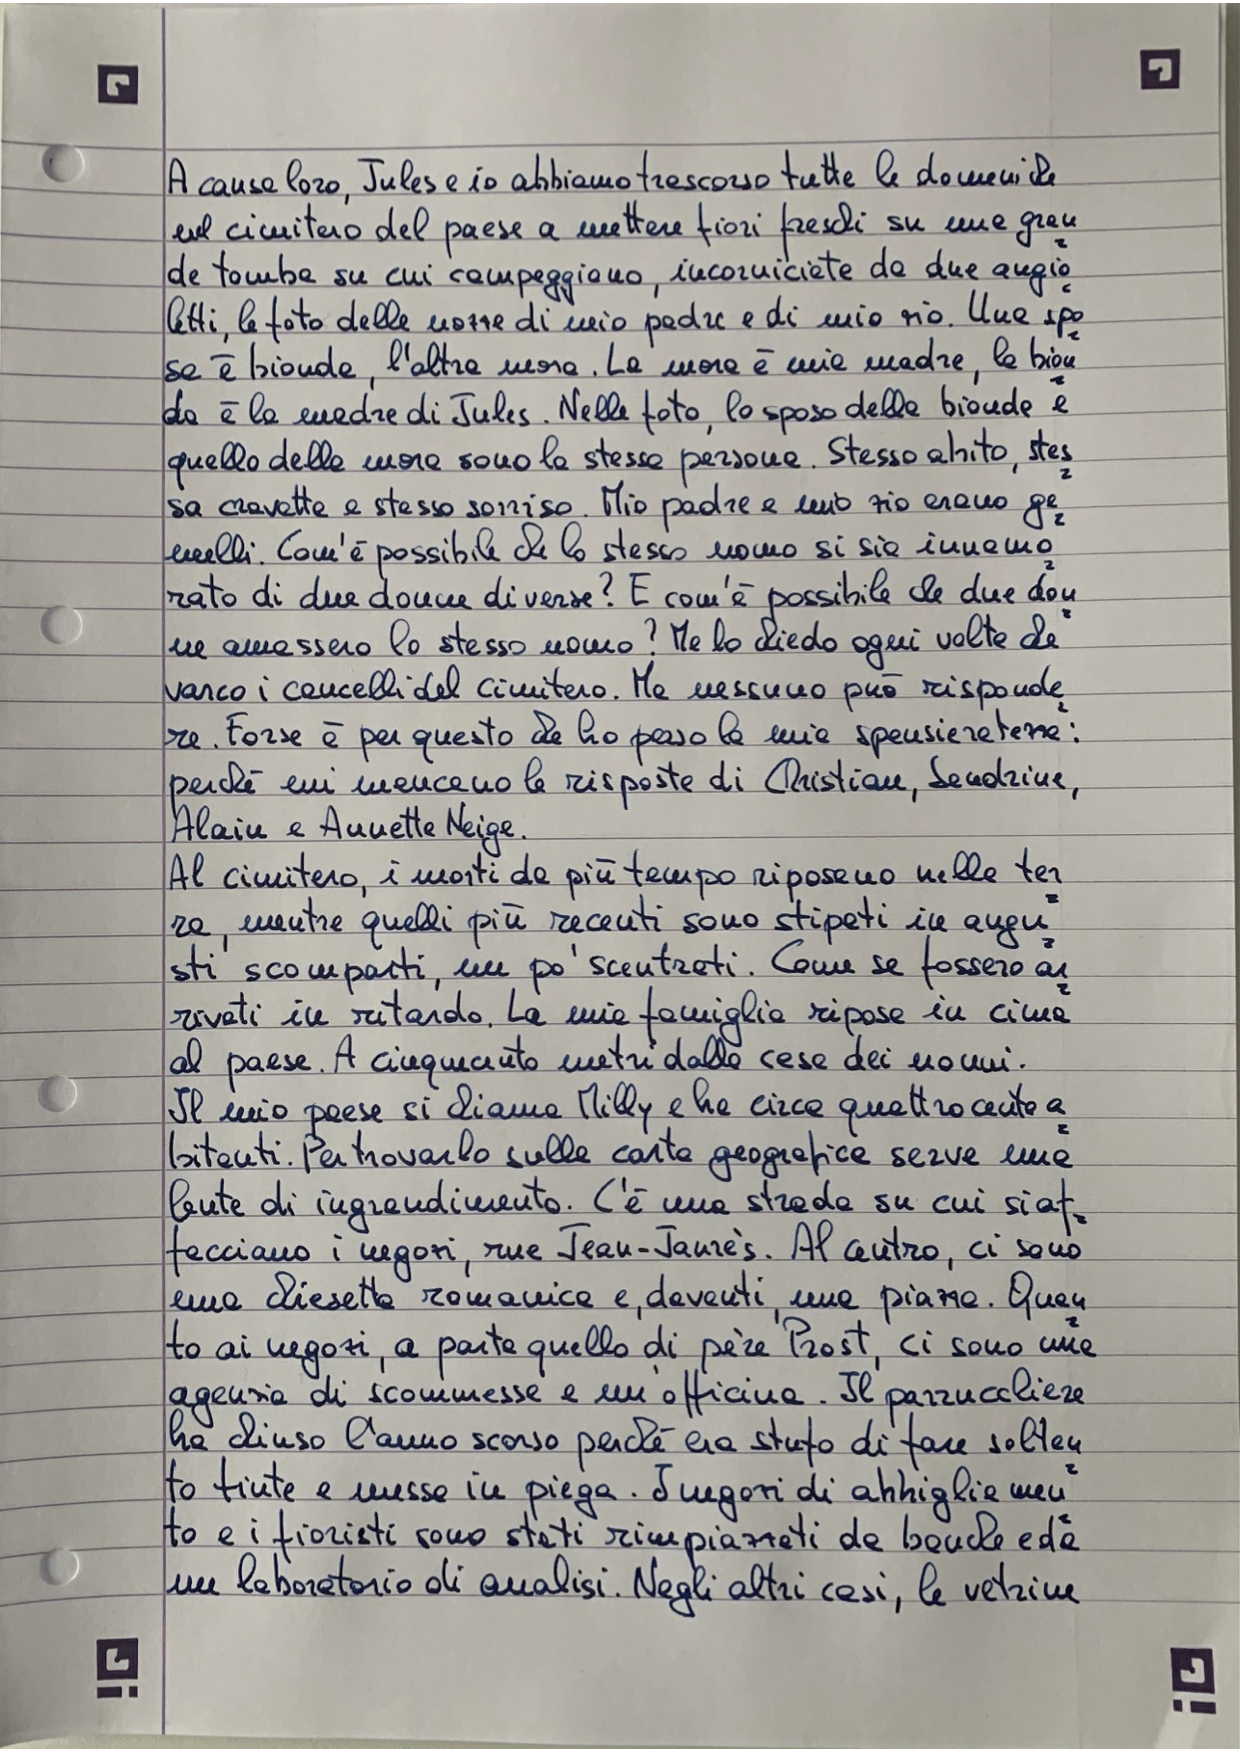 A causa loro, Jules e io abbiamo trascorso tutte le domeniche
nel cimitero del paese a mettere fiori freschi su una gran=
de tomba su cui campeggiano, incorniciate da due angio=
letti, le foto delle nozze di mio padre e di mio zio. Una spo=
sa è bionda, l'altra mora. La mora è mia madre, la bion=
da è la madre di Jules. Nella foto, lo sposo della bionda e
quello della mora sono la stessa persona. Stesso abito, stes=
sa cravatta e stesso sorriso. Mio padre e mio zio erano ge=
melli. Com'è possibile che lo stesso uomo si sia innamo=
rato di due donne diverse? E com'è possibile che due don=
ne amassero lo stesso uomo? Me lo chiedo ogni volta che
varco i cancelli del cimitero. Ma nessuno può risponde=
re. Forse è per questo che ho perso la mia spensieratezza:
perché mi mancano le risposte di Christian, Sandrine,
Alain e Annette Neige.
Al cimitero, i morti da più tempo riposano nella ter=
ra, mentre quelli più recenti sono stipati in angu=
sti scomparti, un po' scentrati. Come se fossero ar=
rivati in ritardo. La mia famiglia riposa in cima
al paese. A cinquanta metri dalla casa dei nonni.
Il mio paese si chiama Milly e ha circa quattrocento a=
bitanti. Per trovarlo sulla carta geografica serve una
lente di ingrandimento. C'è una strada su cui si af=
facciano i negozi, rue Jean-Jaurès. Al centro, ci sono
una chiesetta romanica e, davanti, una piazza. Quan=
to ai negozi, a parte quello di père Prost, ci sono una
agenzia di scommesse e un'officina. Il parrucchiere
ha chiuso l'anno scorso perché era stufo di fare soltan=
to tinte e messa in piega. I negozi di abbigliamen=
to e i fioristi sono stati rimpiazzati da banche e da
un laboratorio di analisi. Negli altri casi, le vetrine